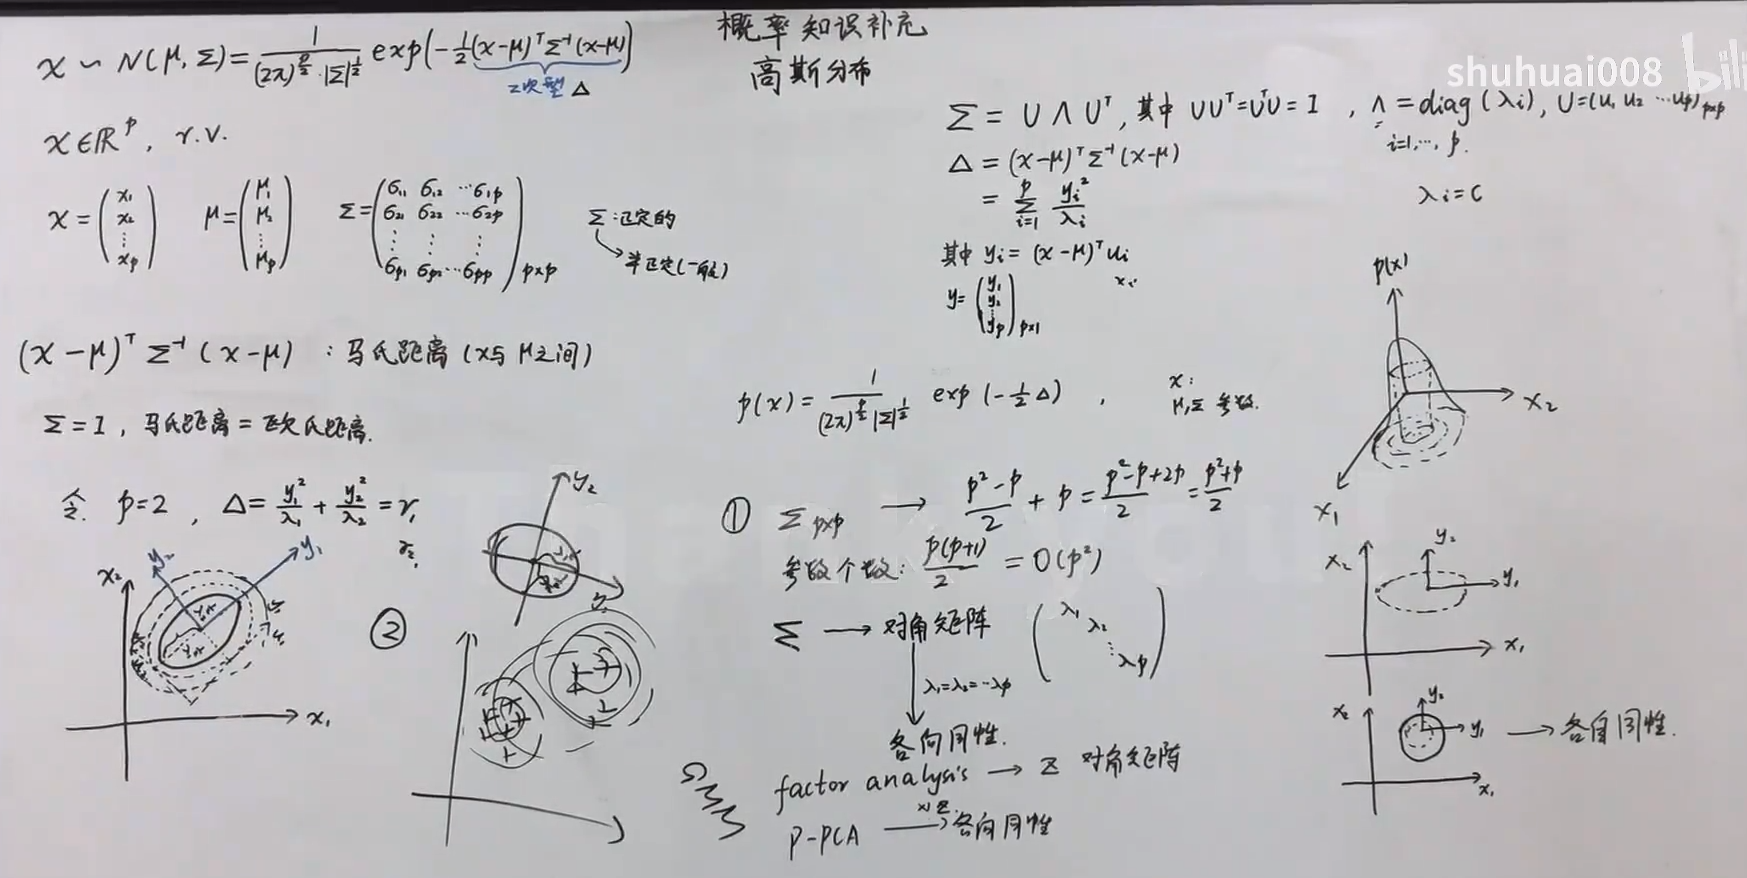 概率知识补充
高斯分布
shuhuai008 bili
x ~ N(μ, Σ) = 1/((2π)^(p/2)·|Σ|^(1/2)) exp(-1/2 (x-μ)^T Σ^-1 (x-μ))
二次型 Δ
x∈R^p, r.v.
x = (x1 x2 ⋮ xp) μ = (μ1 μ2 ⋮ μp) Σ = (σ11 σ12 ⋯ σ1p σ21 σ22 ⋯ σ2p ⋮ ⋮ ⋮ σp1 σp2 ⋯ σpp) p×p
Σ: 正定的
半正定(一般)
(x-μ)^T Σ^-1 (x-μ) : 马氏距离 (x与μ之间)
Σ=I, 马氏距离 = 欧氏距离.
令 p=2, Δ = y1²/λ1 + y2²/λ2 = r1
r2
x2 y2 y1
x1
y2
②
Σ = U Λ U^T, 其中 UU^T = U^TU = I, Λ = diag(λi), U = (u1 u2 ⋯ up) p×p
i=1,⋯, p.
Δ = (x-μ)^T Σ^-1 (x-μ)
= Σ_{i=1}^p yi²/λi
λi = C
其中 yi = (x-μ)^T ui
xi
y = (y1 y2 ⋮ yp) p×1
p(x) = 1/((2π)^(p/2) |Σ|^(1/2)) exp(-1/2 Δ),
x:
μ,Σ 参数.
① Σ p×p → (p²-p)/2 + p = (p²-p+2p)/2 = (p²+p)/2
参数个数: p(p+1)/2 = O(p²)
Σ → 对角矩阵 (λ1 λ2 ⋱ λp)
λ1=λ2=⋯λp
各向同性.
factor analysis → Z 对角矩阵
p-PCA → 各向同性
p(x)
x2
x1
x2 y2 y1
x1
x2 y2 y1 → 各自同性.
x1